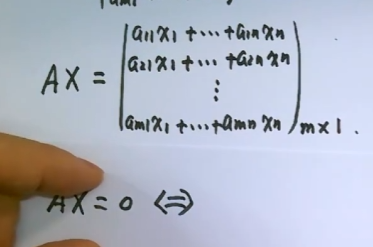 a₁₁x₁ + ⋯ + a₁ₙxₙ
a₂₁x₁ + ⋯ + a₂ₙxₙ
AX =
⋮
aₘ₁x₁ + ⋯ + aₘₙxₙ
m×1.
AX = 0 ⇔